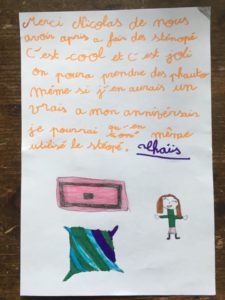 Merci Nicolas de nous
avoir apris a fair des sténopé
C'est cool et c'est joli
on poura prendre des phauto
même si j'en aurais un
vrais a mon anniversair
je pourrai quand même
utilisé le sténopé. Thaïs